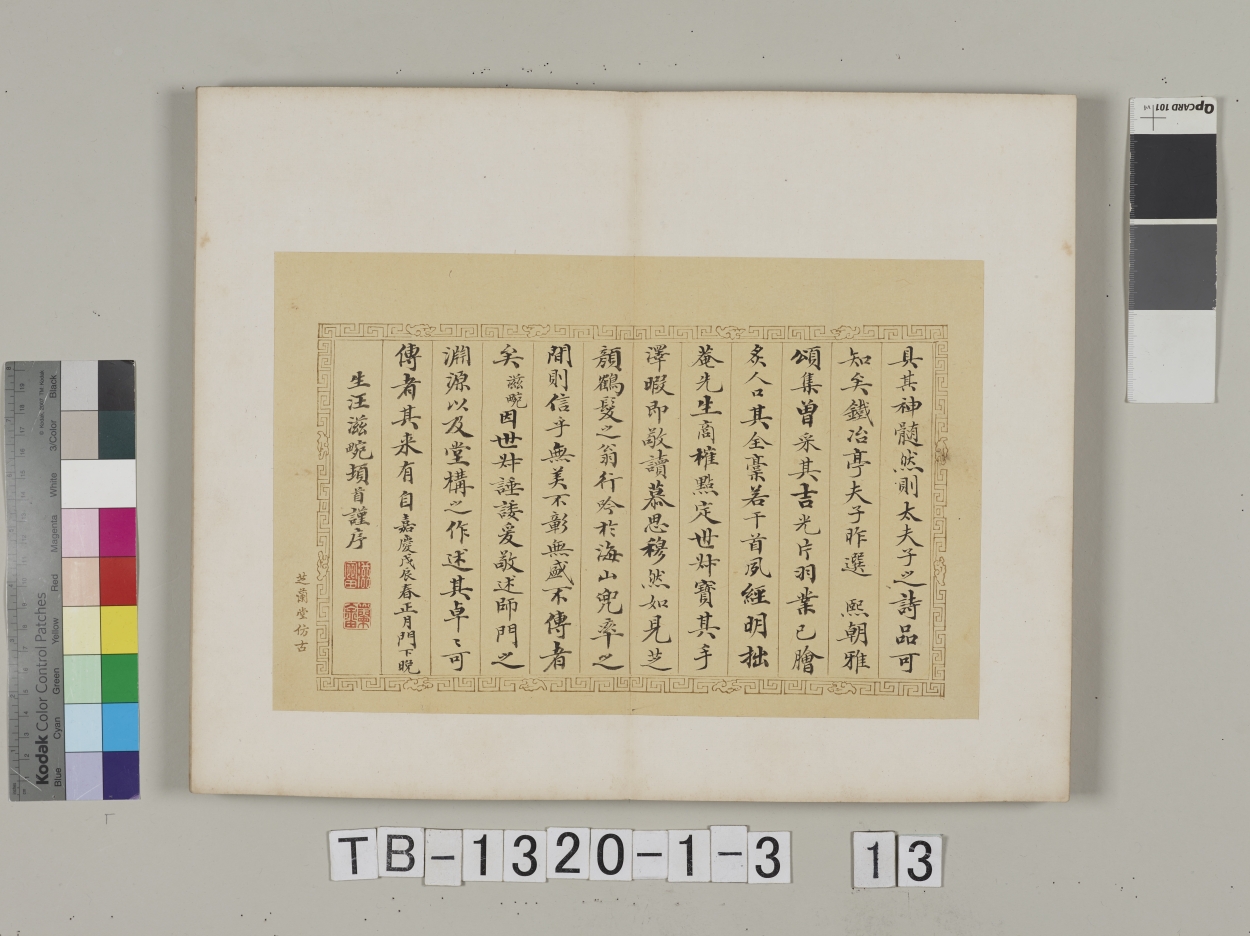 具其神髓然則太夫子之詩品可
知矣鐵冶亭夫子昨選 熙朝雅
頌集曾采其吉光片羽業已膾
炙人口其全稾若干首夙經明拙
菴先生商榷點定世好寶其手
澤暇即敬讀慕思穆然如見芝
顏鶴髮之翁行吟於海山兜率之
間則信乎無美不彰無盛不傳者
矣滋畹因世好諈諉爰敬述師門之
淵源以及堂構之作述其卓〻可
傳者其来有自嘉慶戊辰春正月門下晚
生汪滋畹頓首謹序
芝蘭堂仿古
QpCARD 101
Kodak Color Control Patches
Blue Cyan Green Yellow Red Magenta White 3/Color Black
TB-1320-1-3 13